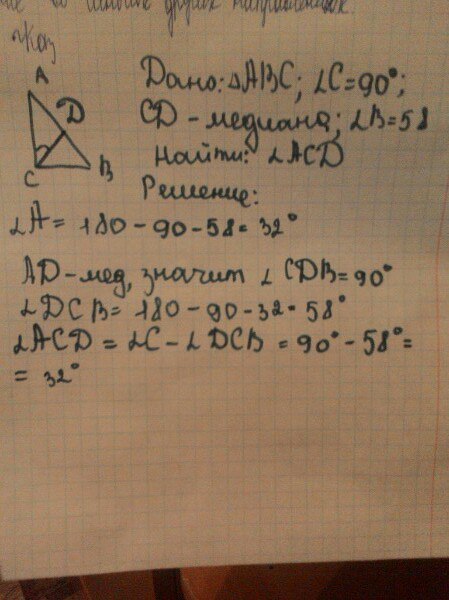 других направлениях.
A
D
C
B
Дано: △ABC; ∠C=90°;
CD-медиана; ∠B=58
Найти: ∠ACD
Решение:
∠A = 180-90-58=32°
AD-мед, значит ∠CDB=90°
∠DCB= 180-90-32=58°
∠ACD = ∠C-∠DCB = 90°-58°=
= 32°